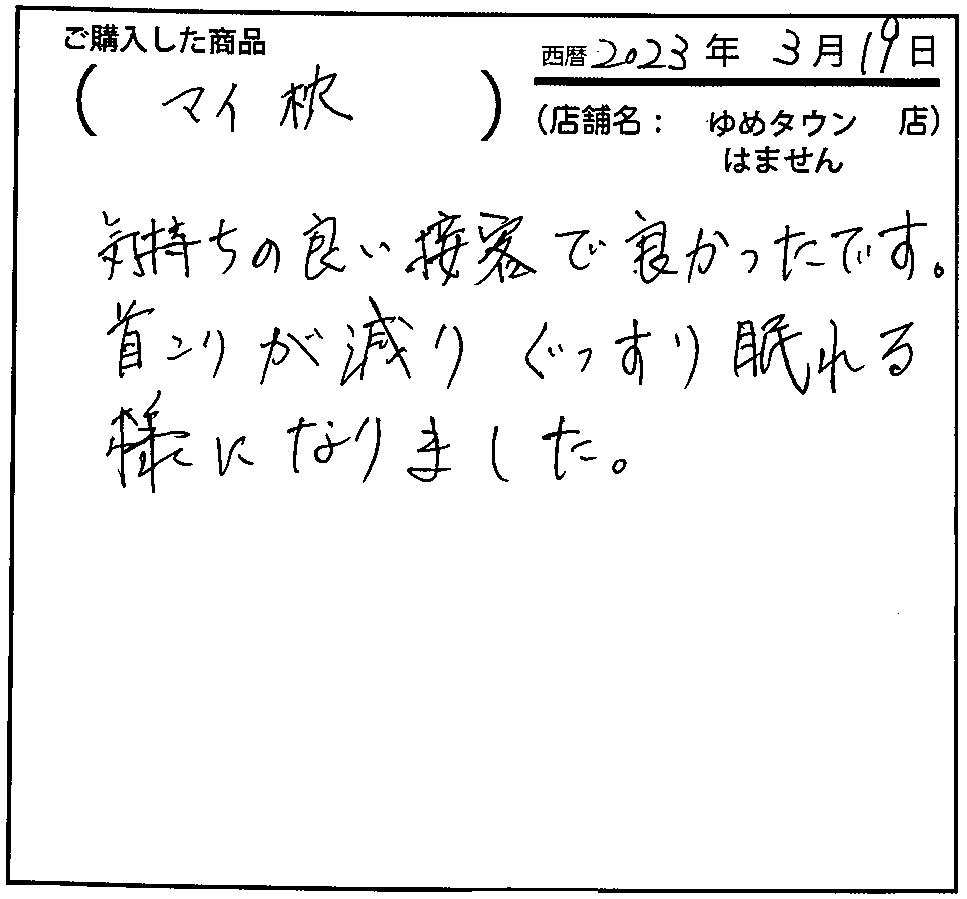 ご購入した商品
(マイ枕)
西暦2023年3月19日
(店舗名: ゆめタウン 店)
はません
気持ちの良い接客で良かったです。
首こりが減りぐっすり眠れる
様になりました。